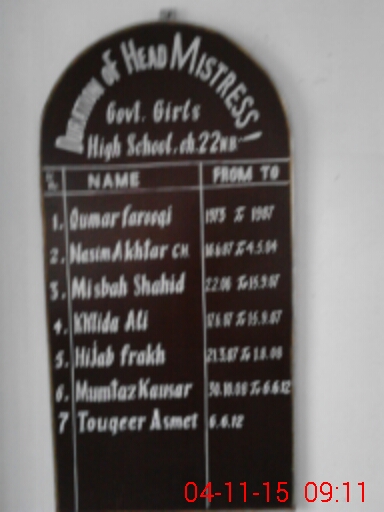 DURATION OF HEAD MISTRESS!
Govt. Girls
High School. ch. 22 KB
NAME FROM TO
1. Qumar farooqi 1973 To 1987
2. Nasim Akhtar CH To 4.5.04
3. Misbah Shahid To 15.9.07
4. Khlida Ali To 15.9.07
5. Hijab frakh 21.3.07 To 1.8.08
6. Mumtaz Kausar 30.10.08 To 6.6.12
7 Touqeer Asmet 6.6.12
04-11-15 09:11